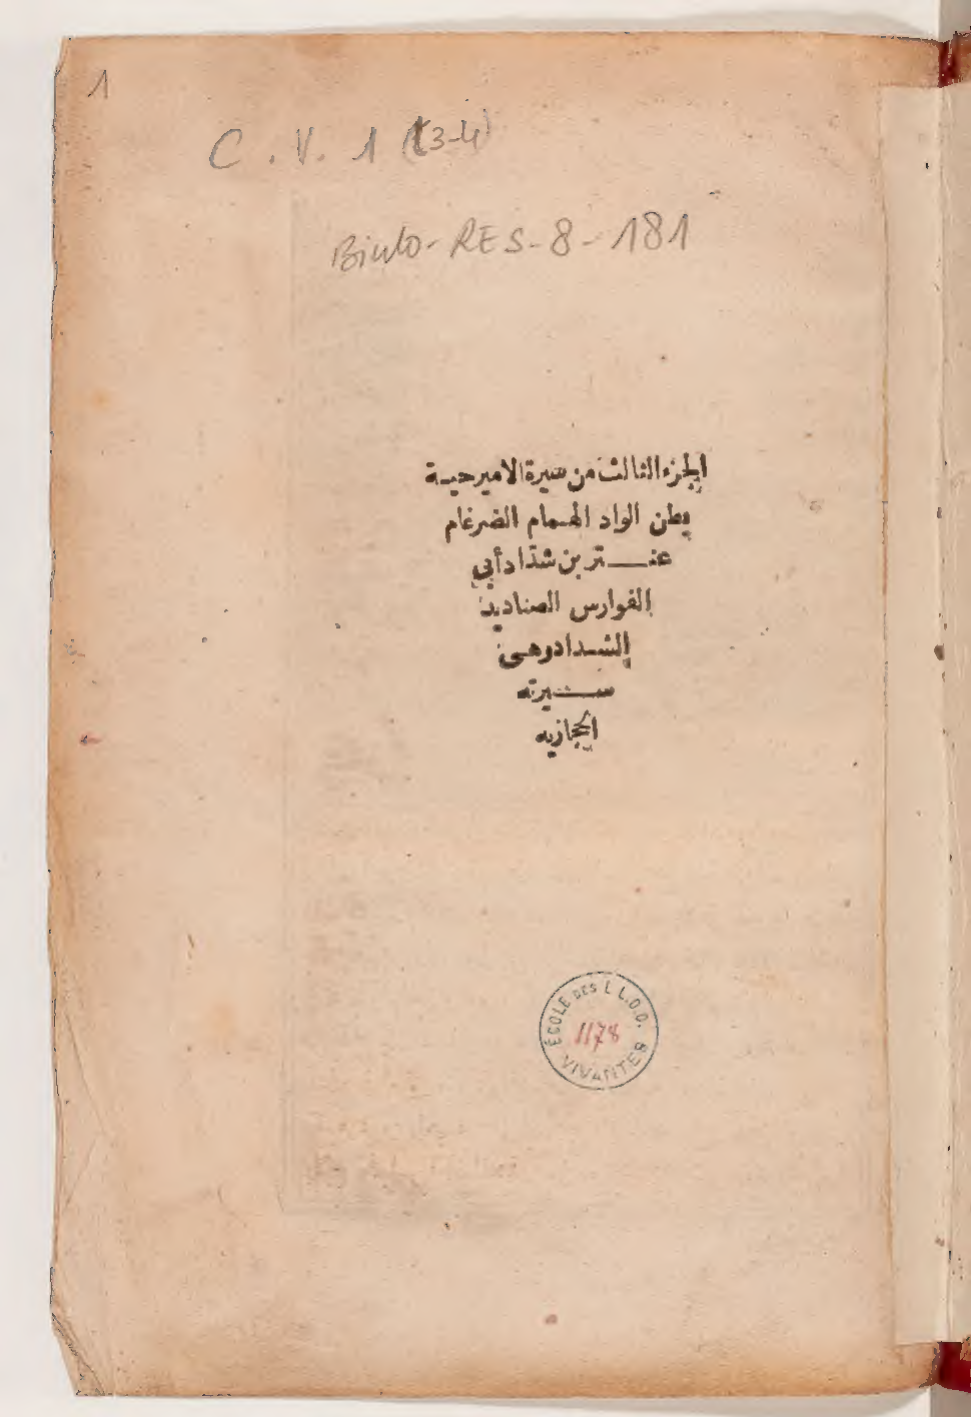 1
C. V. 1 (t3-4)
Biulo-RES-8-181
الجزء الثالث من سيرة الامير حية
بطن الواد الهمام الضرغام
عنتر بن شداد أبي
الفوارس الصناديد
الشداد وهى
سيرته
الحجازيه
ÉCOLE DES L L.O.O.
1178
VIVANTES